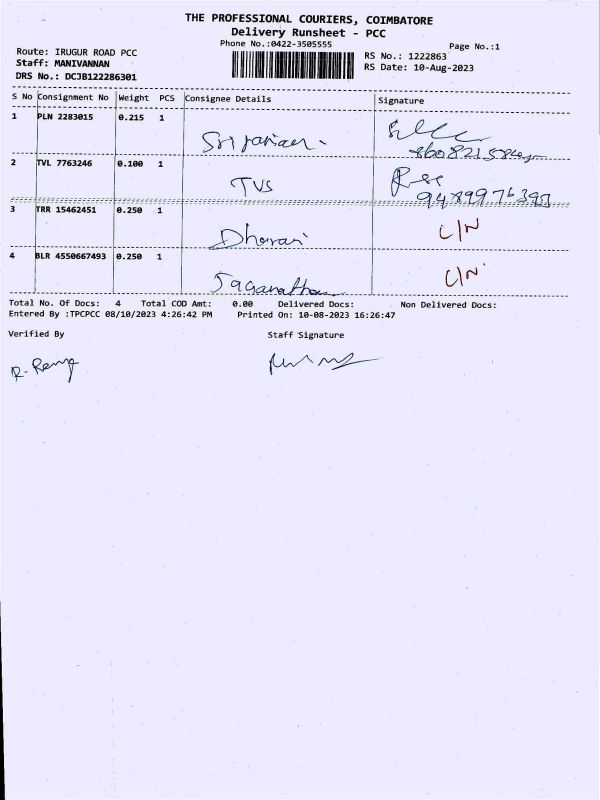 THE PROFESSIONAL COURIERS, COIMBATORE
Delivery Runsheet - PCC
Phone No.:0422-3505555
Page No.:1
Route: IRUGUR ROAD PCC
Staff: MANIVANNAN
DRS No.: DCJB122286301
RS No.: 1222863
RS Date: 10-Aug-2023
S No Consignment No Weight PCS Consignee Details Signature
1 PLN 2283015 0.215 1
2 TVL 7763246 0.100 1 TVS
3 TRR 15462451 0.250 1 C/N
4 BLR 4550667493 0.250 1 Jaganathan C/N
Total No. Of Docs: 4 Total COD Amt: 0.00 Delivered Docs: Non Delivered Docs:
Entered By :TPCPCC 08/10/2023 4:26:42 PM Printed On: 10-08-2023 16:26:47
Verified By Staff Signature